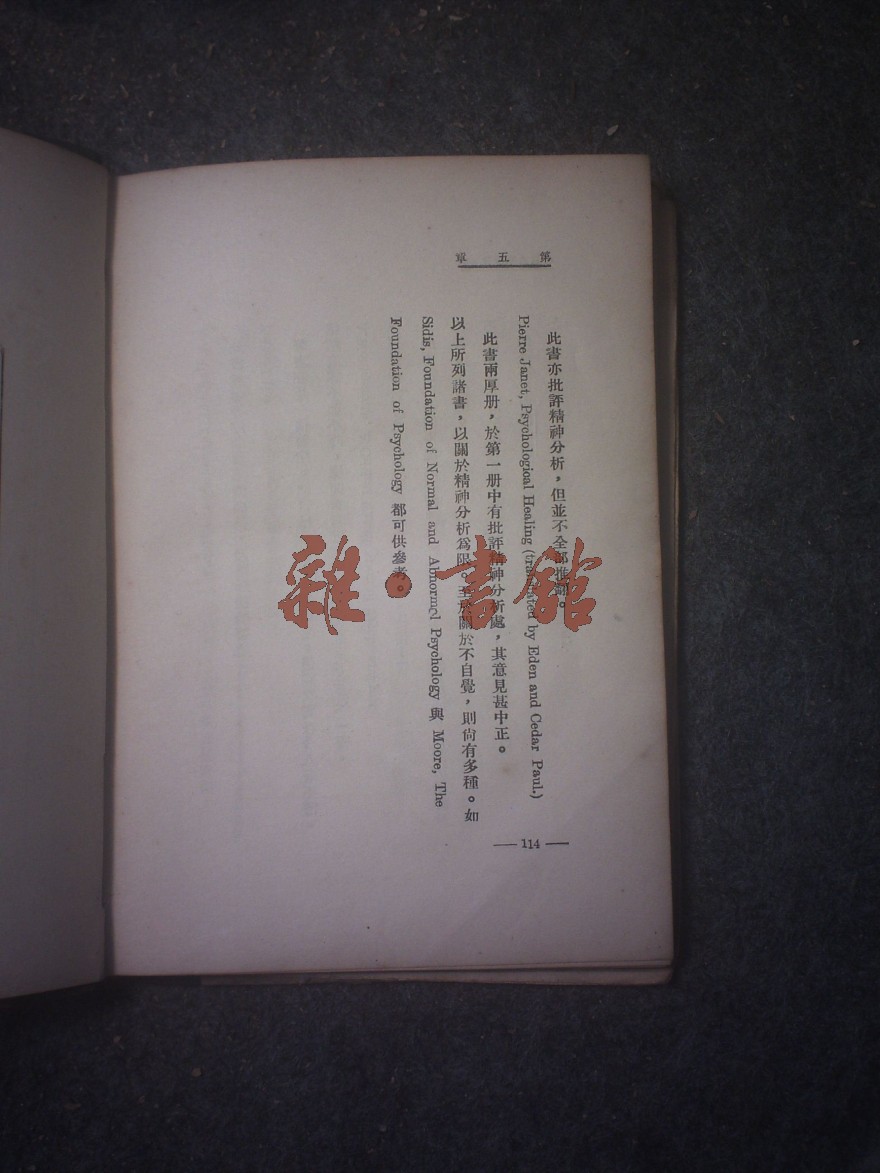 第五章
此書亦批評精神分析，但並不全部推翻。
Pierre Janet, Psychological Healing (translated by Eden and Cedar Paul.)
此書兩厚册，於第一册中有批評精神分析處，其意見甚中正。
以上所列諸書，以關於精神分析爲限，至於關於不自覺，則尙有多種。如
Sidis, Foundation of Normal and Abnormal Psychology 與 Moore, The
Foundation of Psychology 都可供參考。
— 114 —
雜·書館